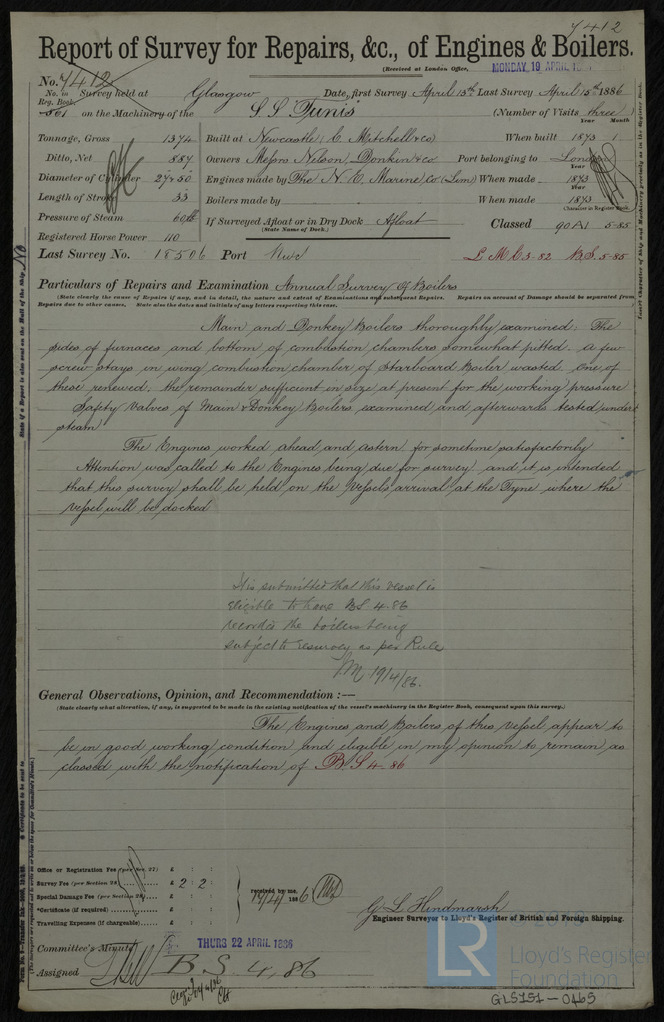 7412
Report of Survey for Repairs, &c., of Engines & Boilers.
(Received at London Office, MONDAY 19 APRIL
No. 7412
No. in Reg. Book. Survey held at Glasgow Date, first Survey April 13th Last Survey April 15th 1886
561 on the Machinery of the S S Tunis (Number of Visits three
Year Month
Tonnage, Gross 1374 Built at Newcastle (C. Mitchell & Co) When built 1873 1
Ditto, Net 887 Owners Messrs Nelson, Donkin & Co Port belonging to London
Diameter of Cylinder 27 & 50 Engines made by The N. E. Marine Co (Lim) When made 1873
Length of Stroke 33 Boilers made by When made 1873
Pressure of Steam 60 lb If Surveyed Afloat or in Dry Dock Afloat Classed 90A1 5-85
(State Name of Dock.) Character in Register Book
Registered Horse Power 110
Last Survey No. 18506 Port Nwc L M C 5-82 B.S. 5-85
Particulars of Repairs and Examination Annual Survey of Boilers
(State clearly the cause of Repairs if any, and in detail, the nature and extent of Examinations and subsequent Repairs. Repairs on account of Damage should be separated from
Repairs due to other causes. State also the dates and initials of any letters respecting this case.
Main and Donkey Boilers thoroughly examined: The
sides of furnaces and bottom of combustion chambers somewhat pitted. a few
screw stays in wing combustion chamber of Starboard Boiler wasted. One of
these renewed, the remainder sufficient in size at present for the working pressure
Safety Valves of Main & Donkey Boilers examined and afterwards tested under
steam
The Engines worked ahead and astern for sometime satisfactorily
Attention was called to the Engines being due for survey and it is intended
that this survey shall be held on the Vessels arrival at the Tyne where the
vessel will be docked
It is submitted that this vessel is
eligible to have BS 4.86
recorded the boilers being
subject to resurvey as per Rule
19/4/86.
General Observations, Opinion, and Recommendation :—
(State clearly what alteration, if any, is suggested to be made in the existing notification of the vessel's machinery in the Register Book, consequent upon this survey.)
The Engines and Boilers of this vessel appear to
be in good working condition and eligible in my opinion to remain as
classed with the notification of B S 4-86
Office or Registration Fee (per Sec. 27) £ : :
Survey Fee (per Section 28) £ 2 : 2 :
Special Damage Fee (per Section 28) £ : :
*Certificate (if required) £ : :
Travelling Expenses (if chargeable) £ : :
received by me, 19/4/1886
G L Hindmarsh
Engineer Surveyor to Lloyd's Register of British and Foreign Shipping.
Committee's Minute THURS 22 APRIL 1886
Assigned B.S. 4,86
LR
Lloyd's Register
Foundation
GLS151-0465